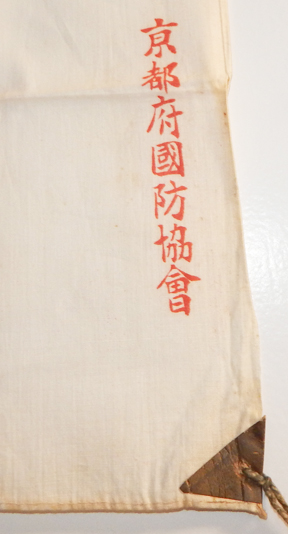 京都府國防協會